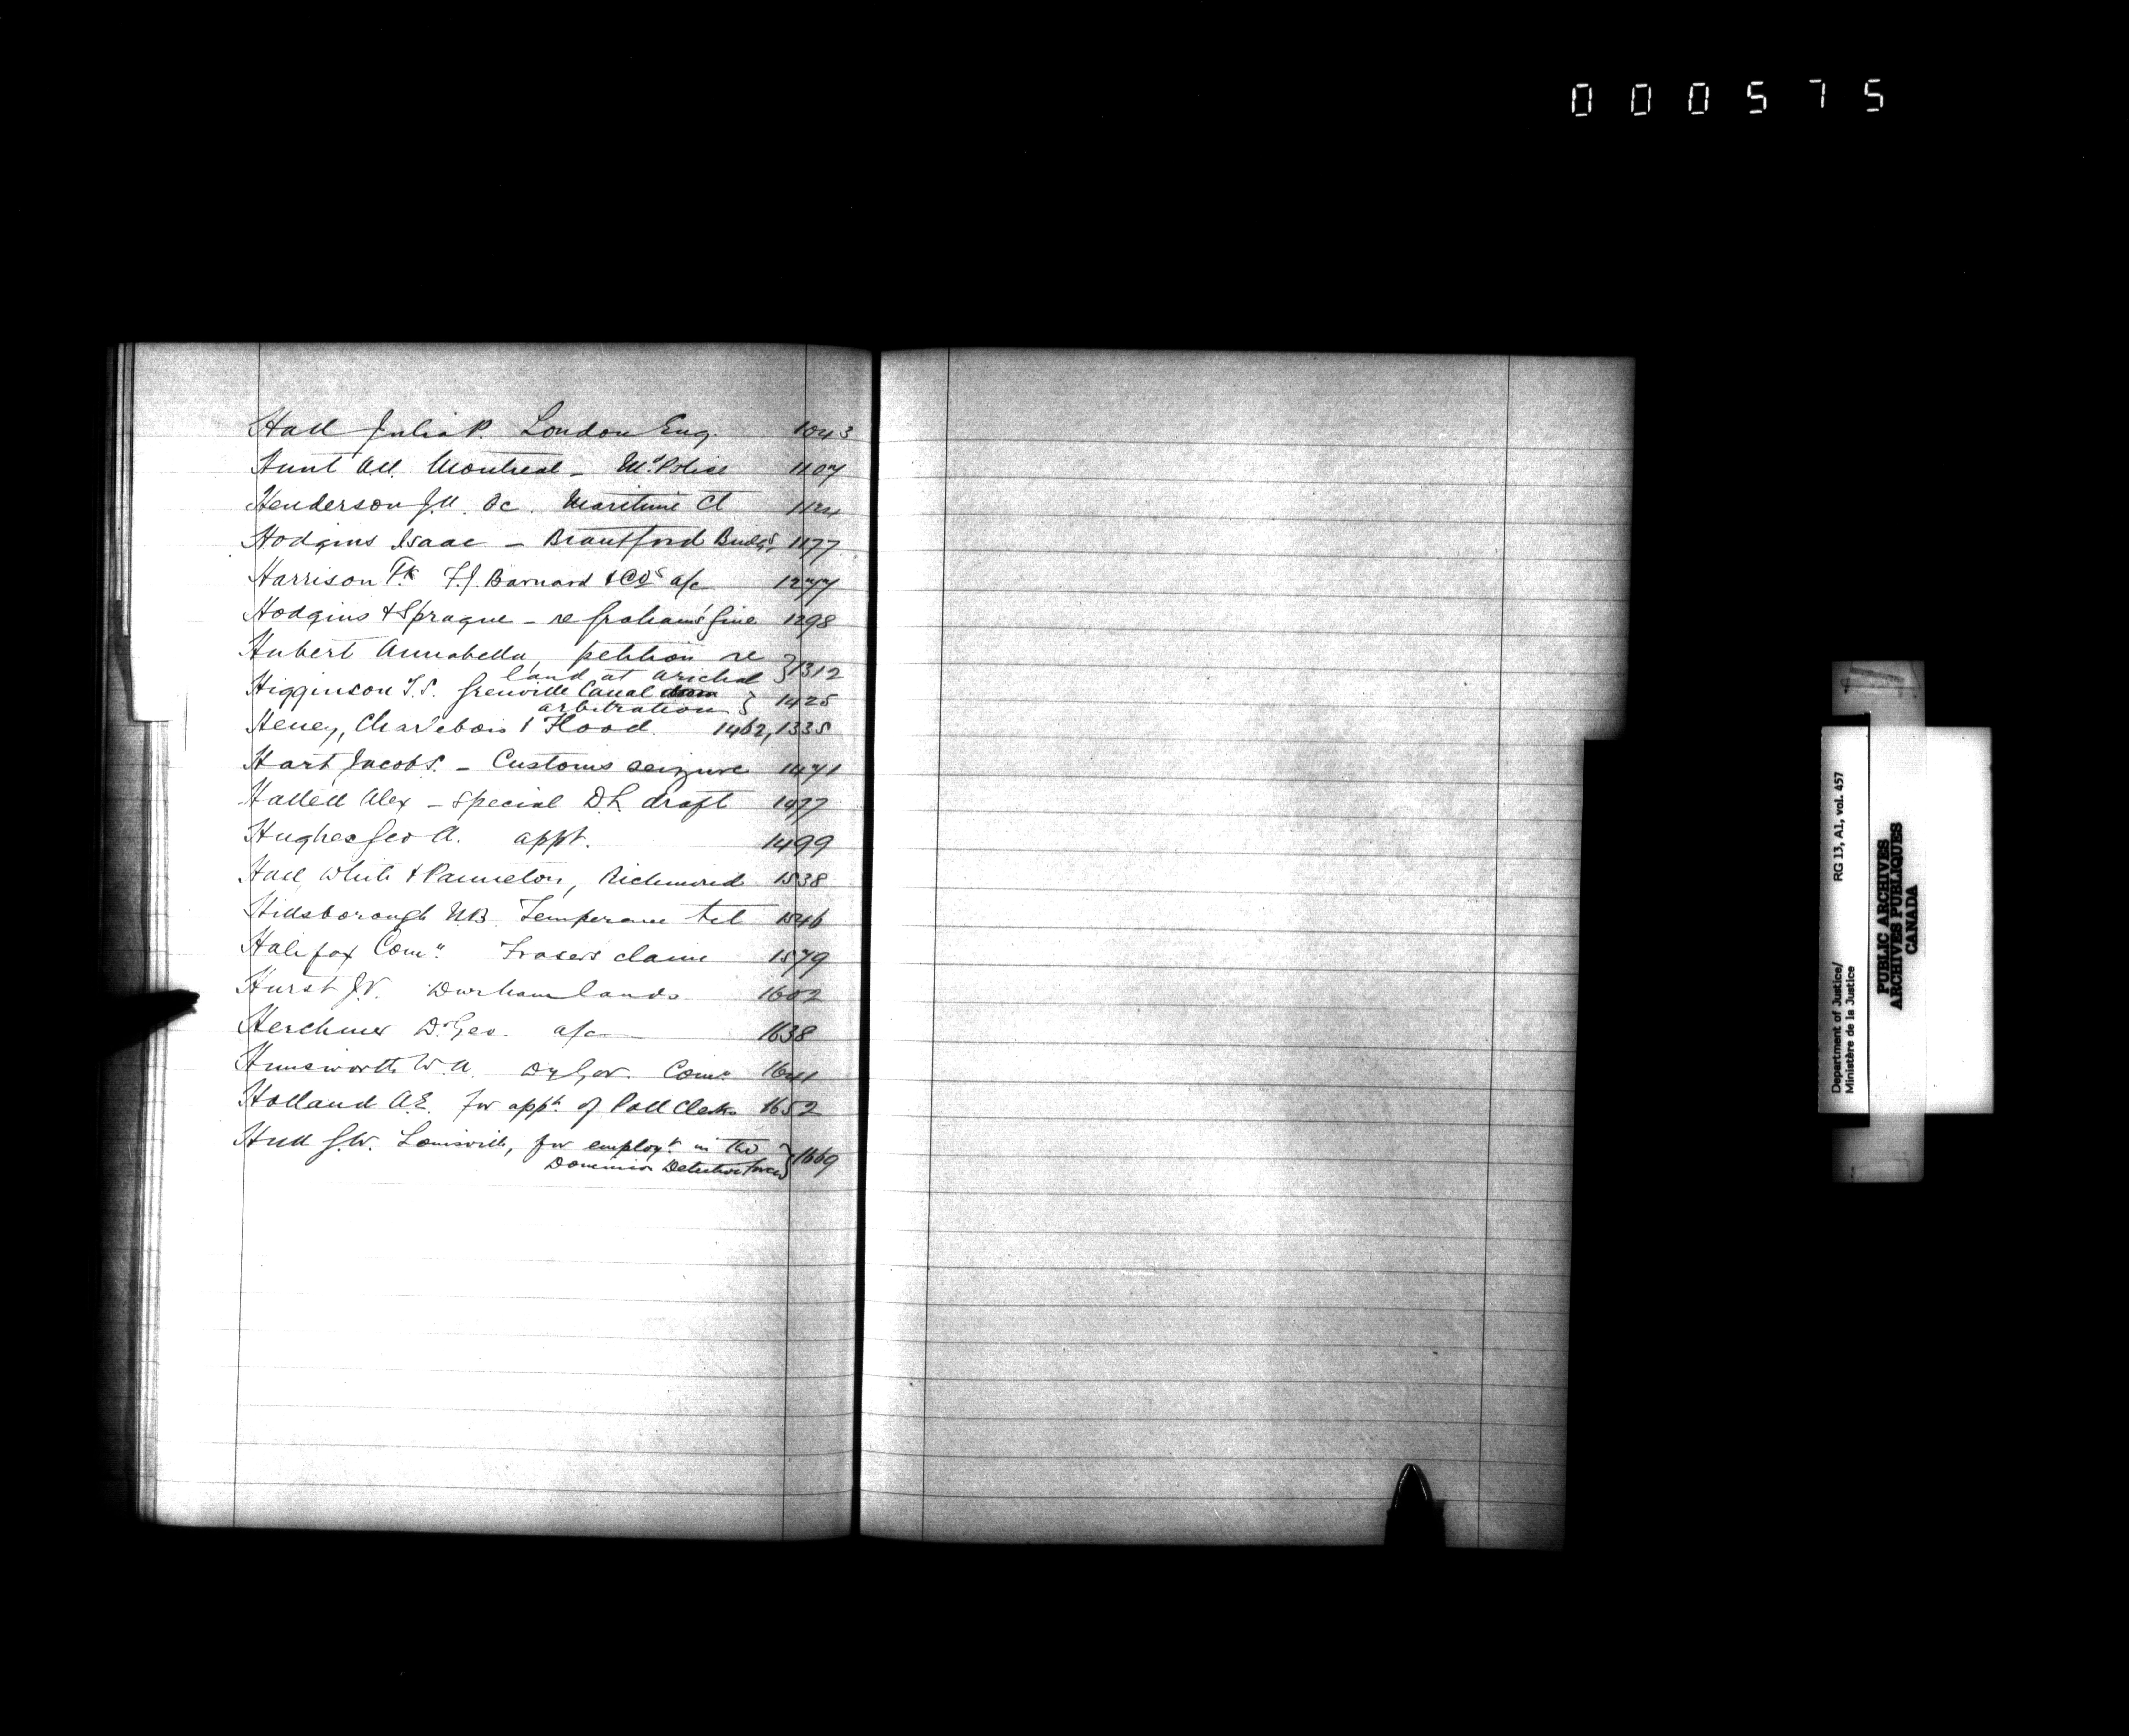 000575
Hall Julia P. London Eng. 1043
Hunt Montreal - Md. Police 1107
Henderson J. Maritime Ct 1124
Hodgins Isaac - Brantford Budgs. 1177
Harrison Fk F.J. Barnard & Cos a/c 1277
Hodgins & Sprague - re Graham's fine 1298
Hubert Annabella, petition re
land at Arichat } 1312
Higginson T.S. Grenville Canal
arbitration } 1425
Heney, Charlebois & Flood. 1462, 1335
Hart Jacob S. - Customs seizure 1471
Hallell Alex - Special draft 1477
Hughes Geo A. appt. 1499
Hall White & Panneton, Richmond 1538
Hillsborough N.B. Temperance 1546
Halifax Comn. Fraser's claim 1579
Hurst J.V. Durham lands 1602
Herchmer Dr Geo. a/c 1638
Himsworth W.A. Comn. 1641
Holland A.E. for appt. of Poll Clerks 1652
Hull G.W. Louisville, for employt. in the
Dominion Detective force } 1669
Department of Justice/ RG 13, A1, vol. 457
Ministère de la Justice
PUBLIC ARCHIVES
ARCHIVES PUBLIQUES
CANADA